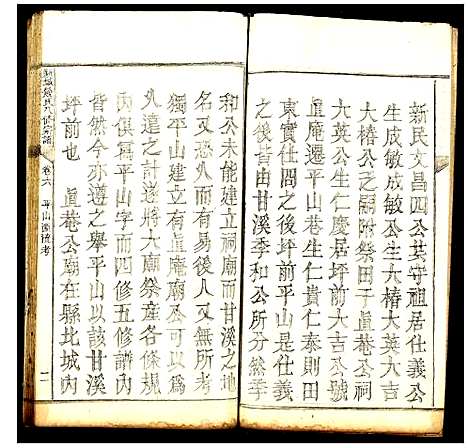 新民文昌四公共守祖居仕義公
生成敏成敏公生大椿大英大吉
大椿公之嗣附祭田子直菴公祠
大英公生仁慶居坪前大吉公號
直菴遷平山巷生仁貴仁泰則田
東實仕問之後坪前平山是仕義
之後皆是甘溪季和公所分然季
和公未能建立祠廟而甘溪之地
名又恐久而有易後人又無所考
獨平山建立有直菴廟可以為
久遠之計遂將大廟祭產各條規
內俱寫平山字而四修五修譜
皆然今亦遵之舉平山以該甘溪
坪前也 直菴公廟在縣北城內
卷六 平山衡流考 二